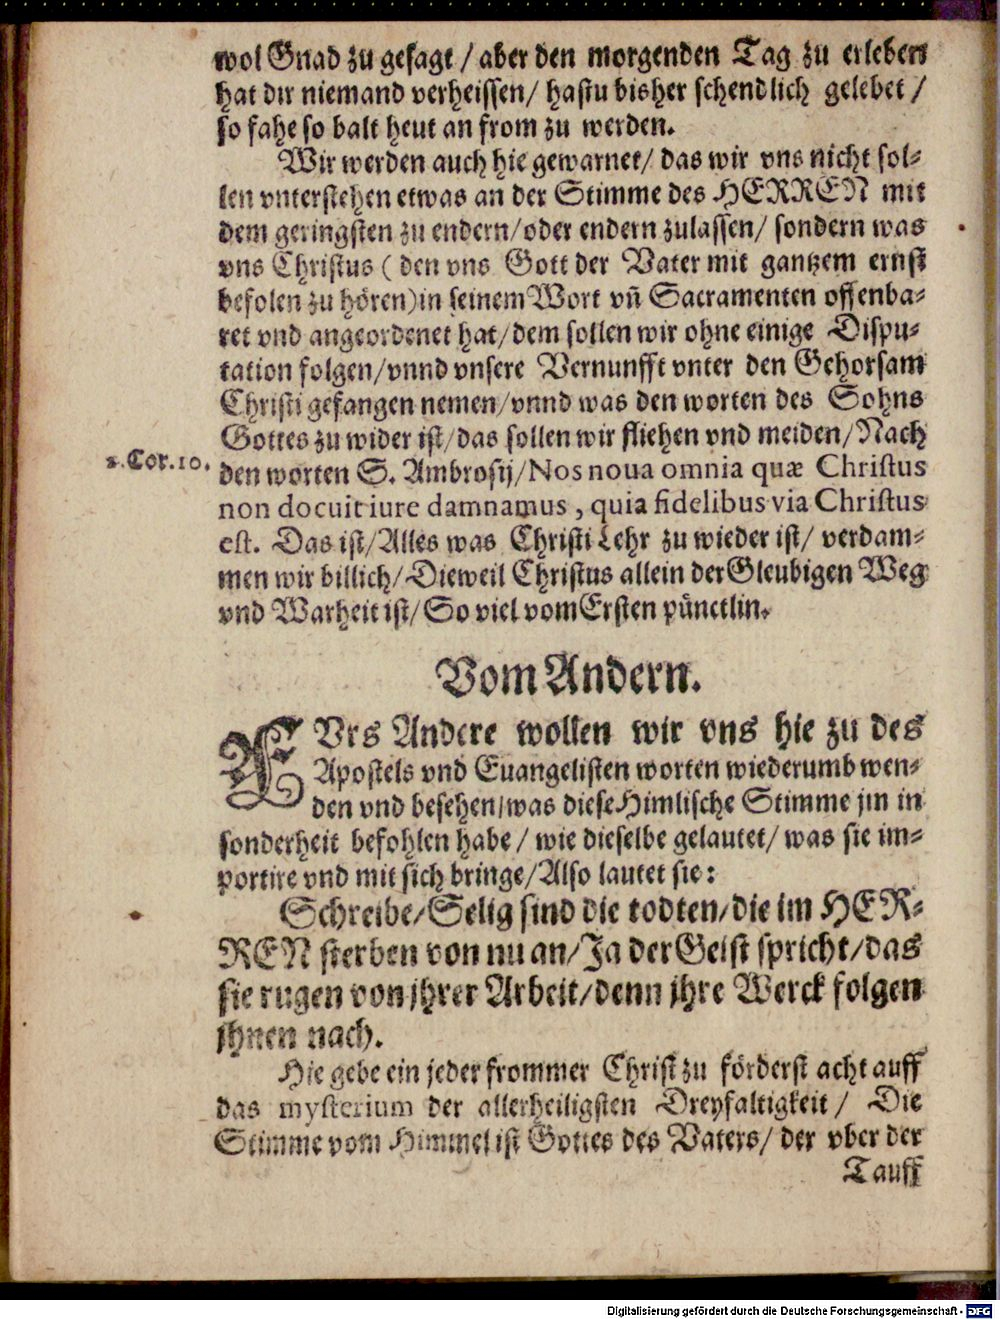 wol Gnad zu gesagt / aber den morgenden Tag zu erleben
hat dir niemand verheissen / hastu bisher schendlich gelebet /
so fahe so balt heut an from zu werden.
Wir werden auch hie gewarnet / das wir vns nicht sol-
len vnterstehen etwas an der Stimme des HERREN mit
dem geringsten zu endern / oder endern zulassen / sondern was
vns Christus ( den vns Gott der Vater mit gantzem ernst
befolen zu hören) in seinem Wort vñ Sacramenten offenba-
ret vnd angeordenet hat / dem sollen wir ohne einige Dispu-
tation folgen / vnnd vnsere Vernunfft vnter den Gehorsam
Christi gefangen nemen / vnnd was den worten des Sohns
Gottes zu wider ist / das sollen wir fliehen vnd meiden / Nach
2. Cor. 10.
den worten S. Ambrosij / Nos noua omnia quæ Christus
non docuit iure damnamus , quia fidelibus via Christus
est. Das ist / Alles was Christi Lehr zu wieder ist / verdam-
men wir billich / Dieweil Christus allein der Gleubigen Weg
vnd Warheit ist / So viel vom Ersten pünctlin.
Vom Andern.
FVrs Andere wollen wir vns hie zu des
Apostels vnd Euangelisten worten wiederumb wen-
den vnd besehen / was diese Himlische Stimme jm in
sonderheit befohlen habe / wie dieselbe gelautet / was sie im-
portire vnd mit sich bringe / Also lautet sie:
Schreibe / Selig sind die todten / die im HER-
REN sterben von nu an / Ja der Geist spricht / das
sie rugen von jhrer Arbeit / denn jhre Werck folgen
jhnen nach.
Hie gebe ein jeder frommer Christ zu förderst acht auff
das mysterium der allerheiligsten Dreyfaltigkeit / Die
Stimme vom Himmel ist Gottes des Vaters / der vber der
Tauff
Digitalisierung gefördert durch die Deutsche Forschungsgemeinschaft - DFG